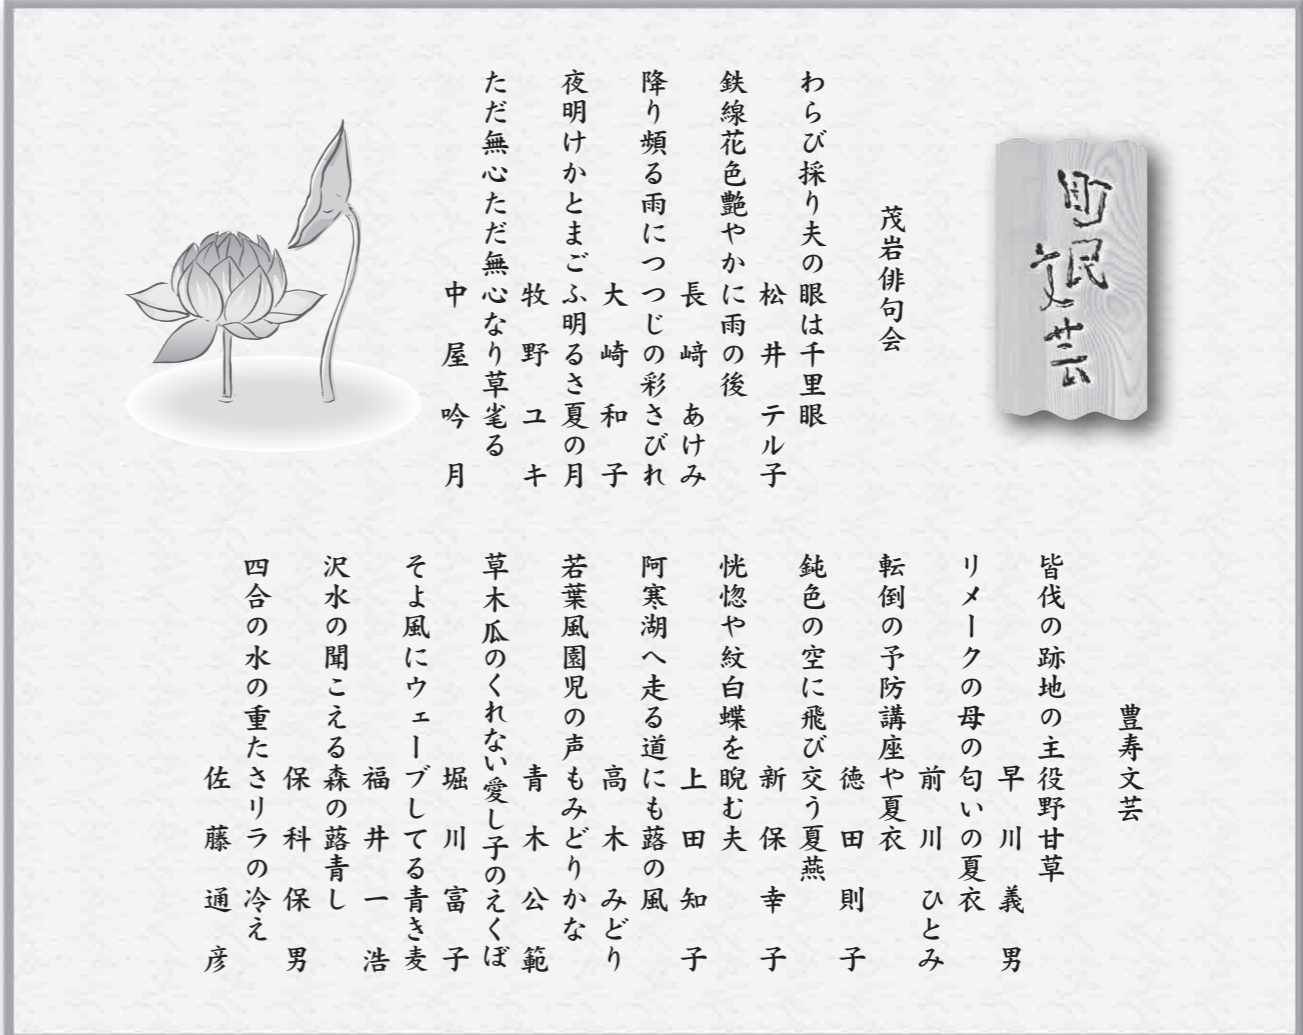 町民文芸
茂岩俳句会
わらび採り夫の眼は千里眼
松井テル子
鉄線花色艶やかに雨の後
長﨑あけみ
降り頻る雨につつじの彩さびれ
大崎和子
夜明けかとまごふ明るさ夏の月
牧野ユキ
ただ無心ただ無心なり草毟る
中屋吟月
豊寿文芸
皆伐の跡地の主役野甘草
早川義男
リメークの母の匂いの夏衣
前川ひとみ
転倒の予防講座や夏衣
徳田則子
鈍色の空に飛び交う夏燕
新保幸子
恍惚や紋白蝶を睨む夫
上田知子
阿寒湖へ走る道にも蕗の風
高木みどり
若葉風園児の声もみどりかな
青木公範
草木瓜のくれない愛し子のえくぼ
堀川富子
そよ風にウェーブしてる青き麦
福井一浩
沢水の聞こえる森の蕗青し
保科保男
四合の水の重たさリラの冷え
佐藤通彦